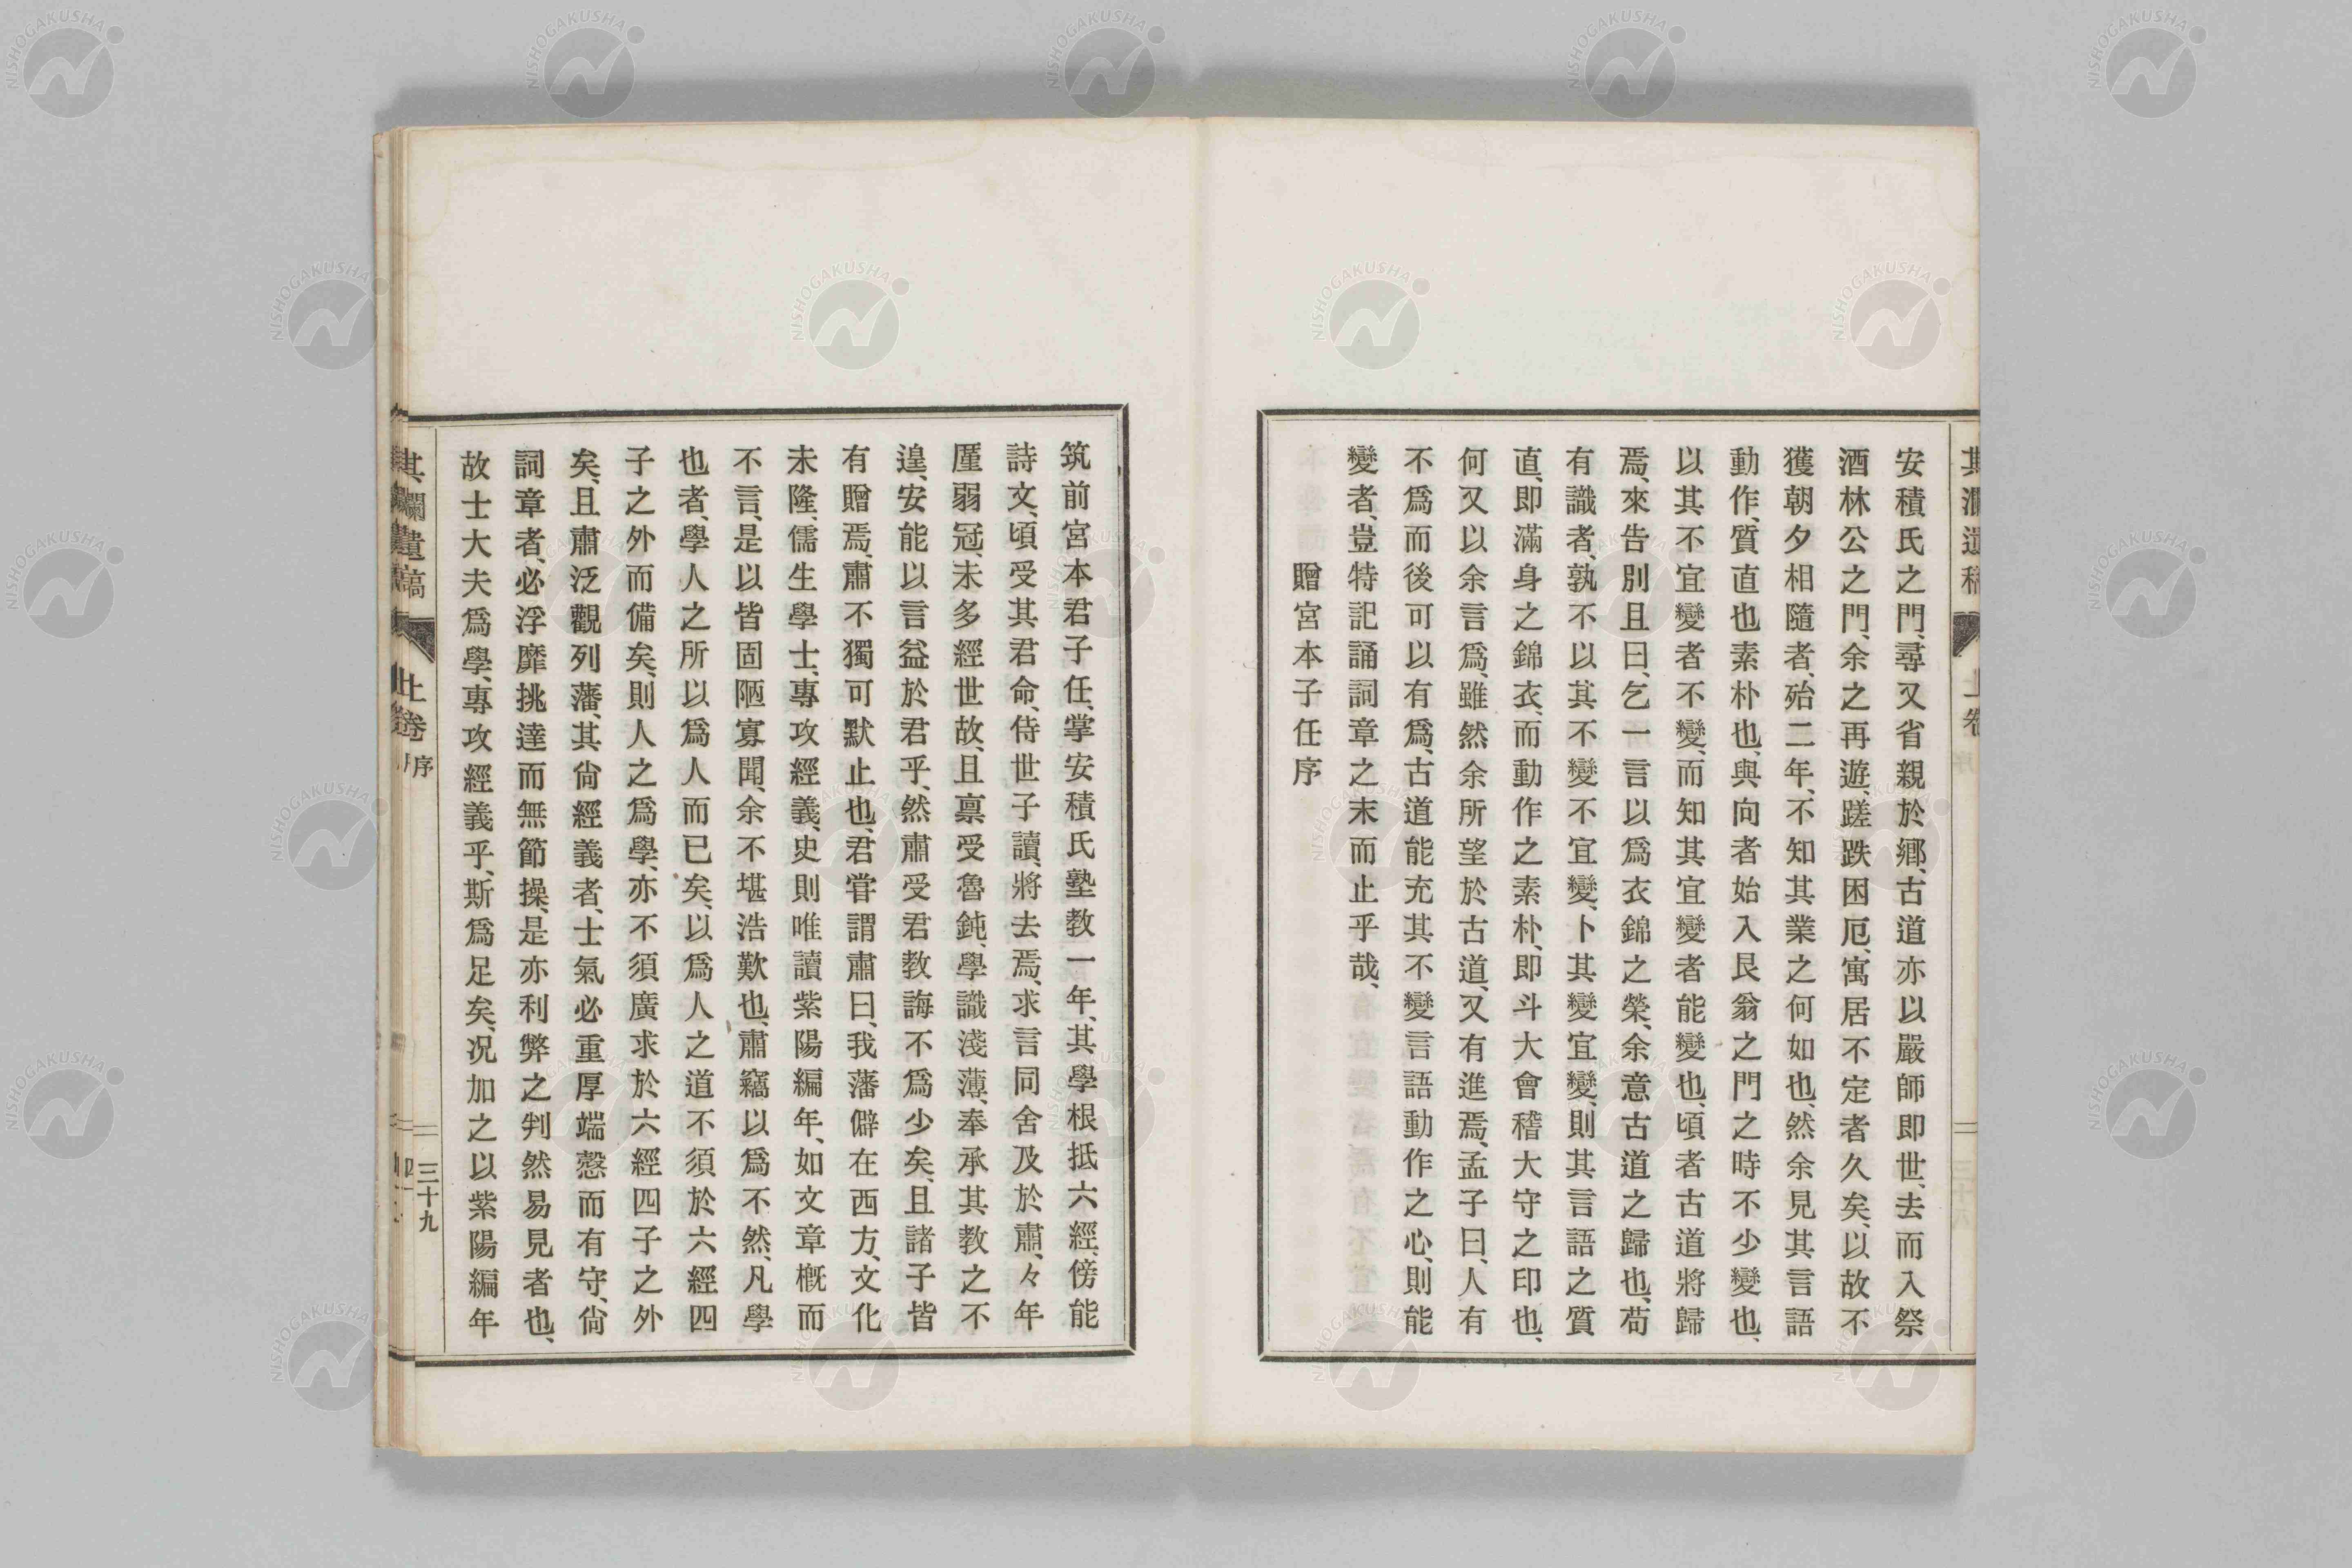 安積氏之門、尋又省親於鄉、古道亦以嚴師即世、去而入祭
酒林公之門、余之再遊、蹉跌困厄、寓居不定者久矣、以故不
獲朝夕相隨者、殆二年、不知其業之何如也、然余見其言語
動作、質直也素朴也、與向者始入艮翁之門之時不少變也、
以其不宜變者不變、而知其宜變者能變也、頃者古道將歸
焉、來告別且曰、乞一言以爲衣錦之榮、余意古道之歸也、苟
有識者、孰不以其不變不宜變、卜其變宜變、則其言語之質
直、即滿身之錦衣、而動作之素朴、即斗大會稽大守之印也、
何又以余言爲、雖然余所望於古道、又有進焉、孟子曰、人有
不爲而後可以有爲、古道能充其不變言語動作之心、則能
變者、豈特記誦詞章之末而止乎哉、
贈宮本子任序
筑前宮本君子任、掌安積氏塾教一年、其學根抵六經、傍能
詩文、頃受其君命、侍世子讀、將去焉、求言同舍及於肅、々年
厪弱冠、未多經世故、且稟受魯鈍、學識淺薄、奉承其教之不
遑、安能以言益於君乎、然肅受君教誨不爲少矣、且諸子皆
有贈焉、肅不獨可默止也、君嘗謂肅曰、我藩僻在西方、文化
未隆、儒生學士、專攻經義、史則唯讀紫陽編年、如文章概而
不言、是以皆固陋寡聞、余不堪浩歎也、肅竊以爲不然、凡學
也者、學人之所以爲人而已矣、以爲人之道不須於六經四
子之外而備矣、則人之爲學、亦不須廣求於六經四子之外
矣、且肅泛觀列藩、其尙經義者、士氣必重厚端愨而有守、尙
詞章者、必浮靡挑達而無節操、是亦利弊之判然易見者也、
故士大夫爲學、專攻經義乎、斯爲足矣、況加之以紫陽編年
其瀾遺稿 上卷 序 三十九